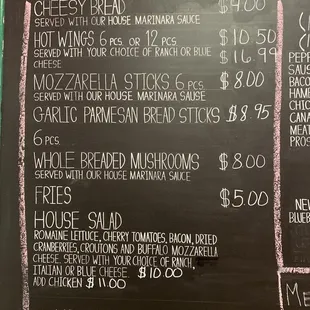 CHEESY BREAD $9.00
SERVED WITH OUR HOUSE MARINARA SAUCE
HOT WINGS 6 PCS. OR 12 PCS. $10.50
SERVED WITH YOUR CHOICE OF RANCH OR BLUE $16.99
CHEESE
MOZZARELLA STICKS 6 PCS. $8.00
SERVED WITH OUR HOUSE MARINARA SAUSE
GARLIC PARMESAN BREAD STICKS $8.95
6 PCS.
WHOLE BREADED MUSHROOMS $8.00
SERVED WITH OUR HOUSE MARINARA SAUCE
FRIES $5.00
HOUSE SALAD
ROMAINE LETTUCE, CHERRY TOMATOES, BACON, DRIED
CRANBERRIES, CROUTONS AND BUFFALO MOZZARELLA
CHEESE. SERVED WITH YOUR CHOICE OF RANCH,
ITALIAN OR BLUE CHEESE. $10.00
ADD CHICKEN $11.00
PEPP
SAUS
BACO
HAM
CHIC
CANA
MEAT
PROS
NE
BLUEB
ME